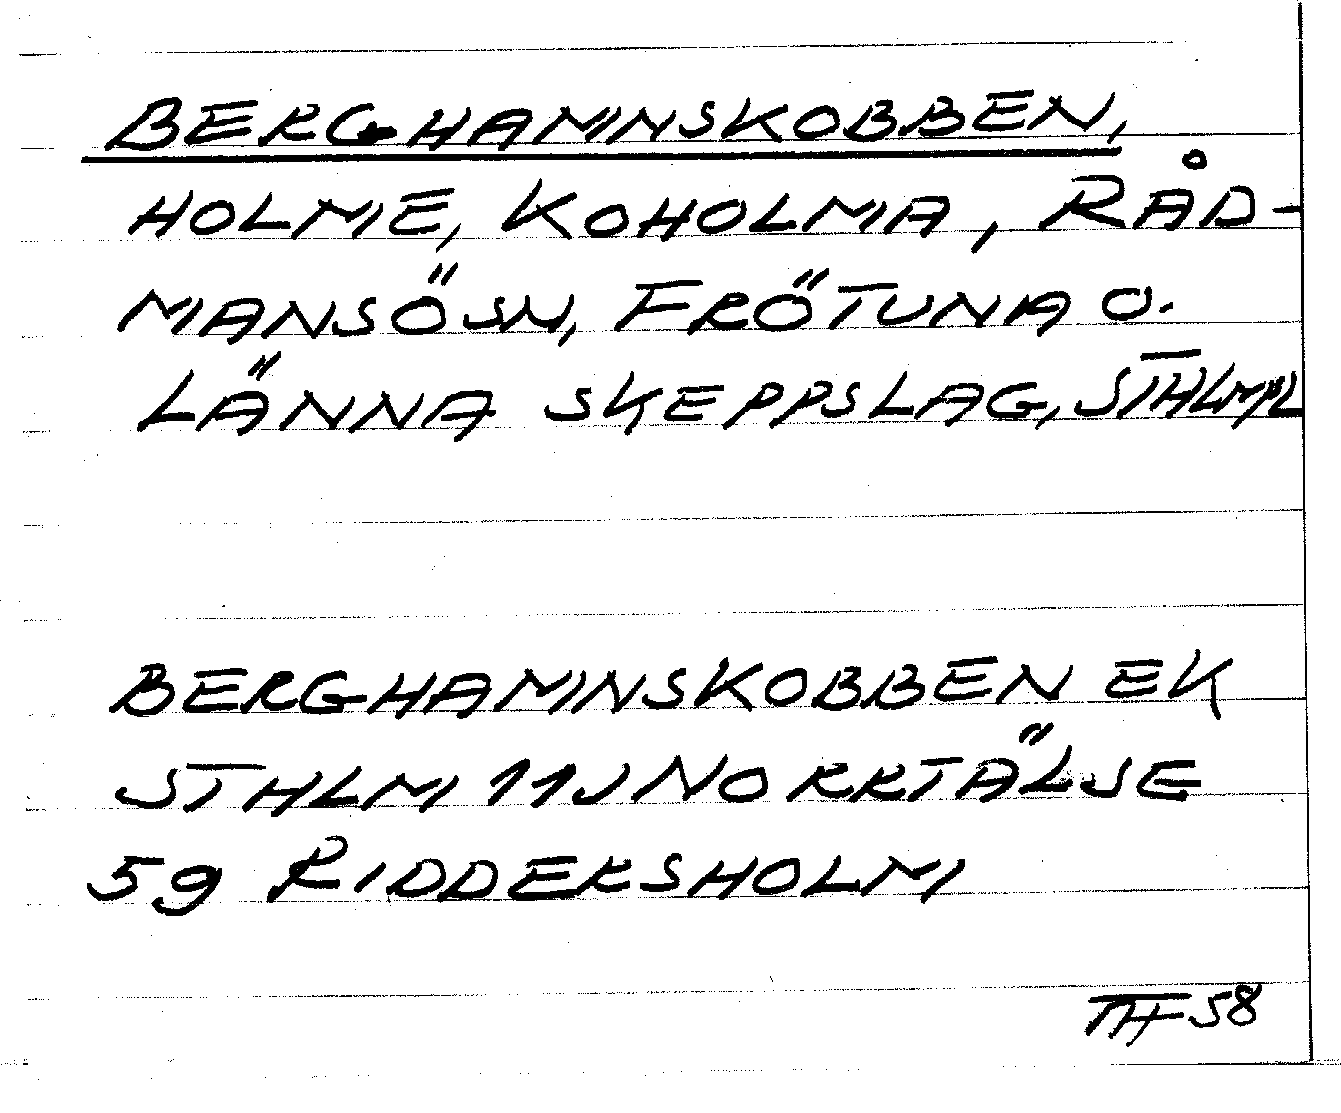 BERGHAMNSKOBBEN,
HOLME, KOHOLMA, RÅD-
MANSÖSN, FRÖTUNA O.
LÄNNA SKEPPSLAG, STHLMPL
BERGHAMNSKOBBEN EK
STHLM 11J NORRTÄLJE
59 RIDDERSHOLM
THF 58